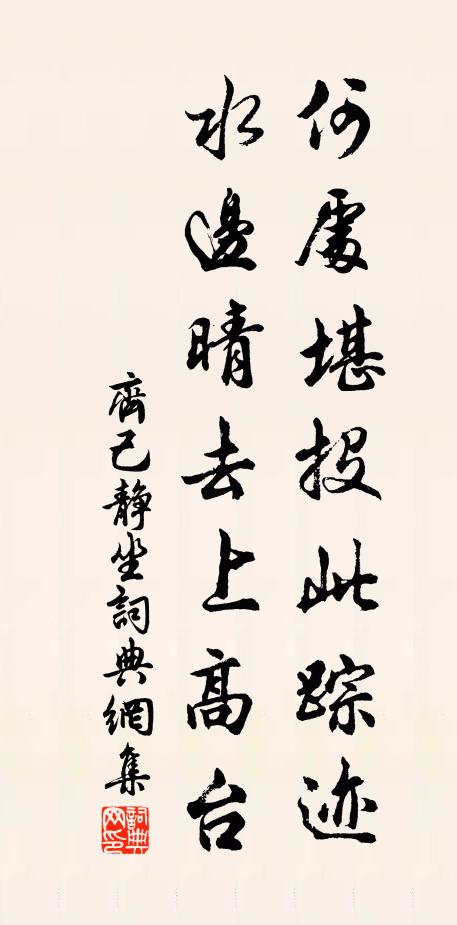 何處堪投此踪迹
水邊晴去上高台
齊己靜坐詞典網集
詞典網印